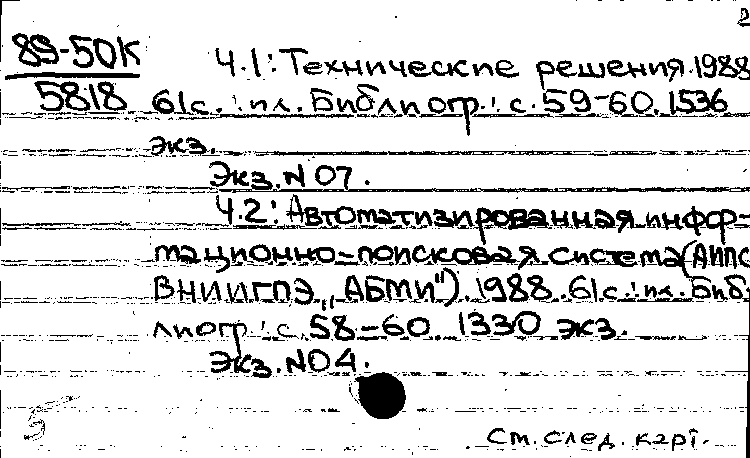 2
89-50К Ч.1: Технические решения. 1988
5818 61с.: ил. Библиогр.: с. 59-60. 1536
экз.
Экз. N 07.
Ч.2: Автоматизированная инфор-
мационно-поисковая система (АИПС
ВНИИГПЭ „АБМИ"). 1988. 61с.: ил. Биб-
лиогр.: с. 58-60. 1330 экз.
Экз. N 04.
См. след. карт.